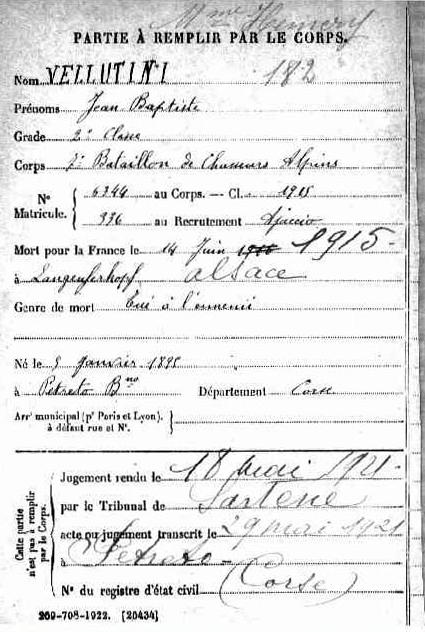 Mme Hemery
PARTIE À REMPLIR PAR LE CORPS.
Nom VELLUTINI 182
Prénoms Jean Baptiste
Grade 2e Classe
Corps 7e Bataillon de Chasseurs Alpins
N° Matricule. { 6344 au Corps. — Cl. 1915
336 au Recrutement Ajaccio
Mort pour la France le 14 Juin 1915
à Langenferkopf alsace
Genre de mort Tué à l'ennemi
Né le 5 Janvier 1895
à Petreto Bno Département Corse
Arrt municipal (pr Paris et Lyon).
à défaut rue et N°.
Cette partie n'est pas à remplir par le Corps.
Jugement rendu le 18 mai 1921
par le Tribunal de Sartene
acte ou jugement transcrit le 29 mai 1921
à Petreto-
N° du registre d'état civil (Corse)
269-708-1922. [26434]